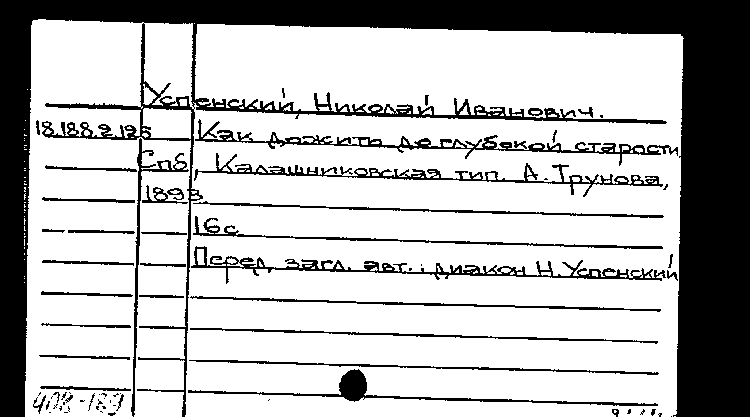 Успенский, Николай Иванович.
18.188.2.125 Как дожить до глубокой старости
Спб, Калашниковская тип. А. Трунова,
1893
16с
Перед загл. авт.: диакон Н. Успенский
408-189